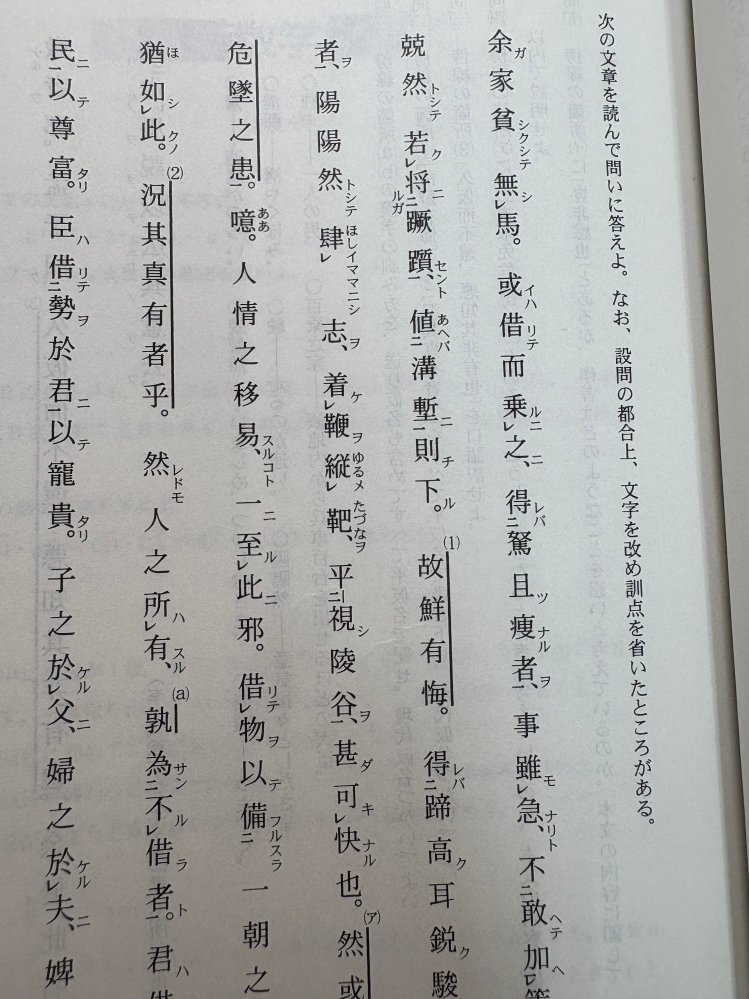 次の文章を読んで問いに答えよ。なお、設問の都合上、文字を改め訓点を省いたところがある。
余ガ家貧シクシテ無レシ馬。或イハ借リテ而乗レルニ之ニ、得二レバ駑且ツ痩ナル者一ヲ、事雖レモ急ナリト、不二敢ヘテ加ヘ
兢然トシテ若レク将二ニルガ蹶躓一セント、値二あヘバ溝塹一ニ則チ下ル。(1)故鮮有悔。得二レバ蹄高ク耳鋭ク駿
者一ヲ、陽陽然トシテ肆レほしイママニシ志ヲ、着レケ鞭ヲ縦レゆるメ靶たづなヲ、平二視シ陵谷一ヲ、甚ダ可レキ快ナル也。(ア)然或
危墜之患一。噫ああ。人情之移易スルコト、一ニ至レル此ニ邪。借レリテ物ヲ以テ備二フルスラ一朝之
猶ほ如レシ此クノ。(2)況其真有者乎。然レドモ人之所レハ有スル、(a)孰為二サン不レル借ラ者一ト。君ハ借
民一ニ以テ尊富タリ。臣ハ借二リテ勢ヲ於君一ニ以テ寵貴タリ。子之於レケル父ニ、婦之於レケル夫ニ、婢